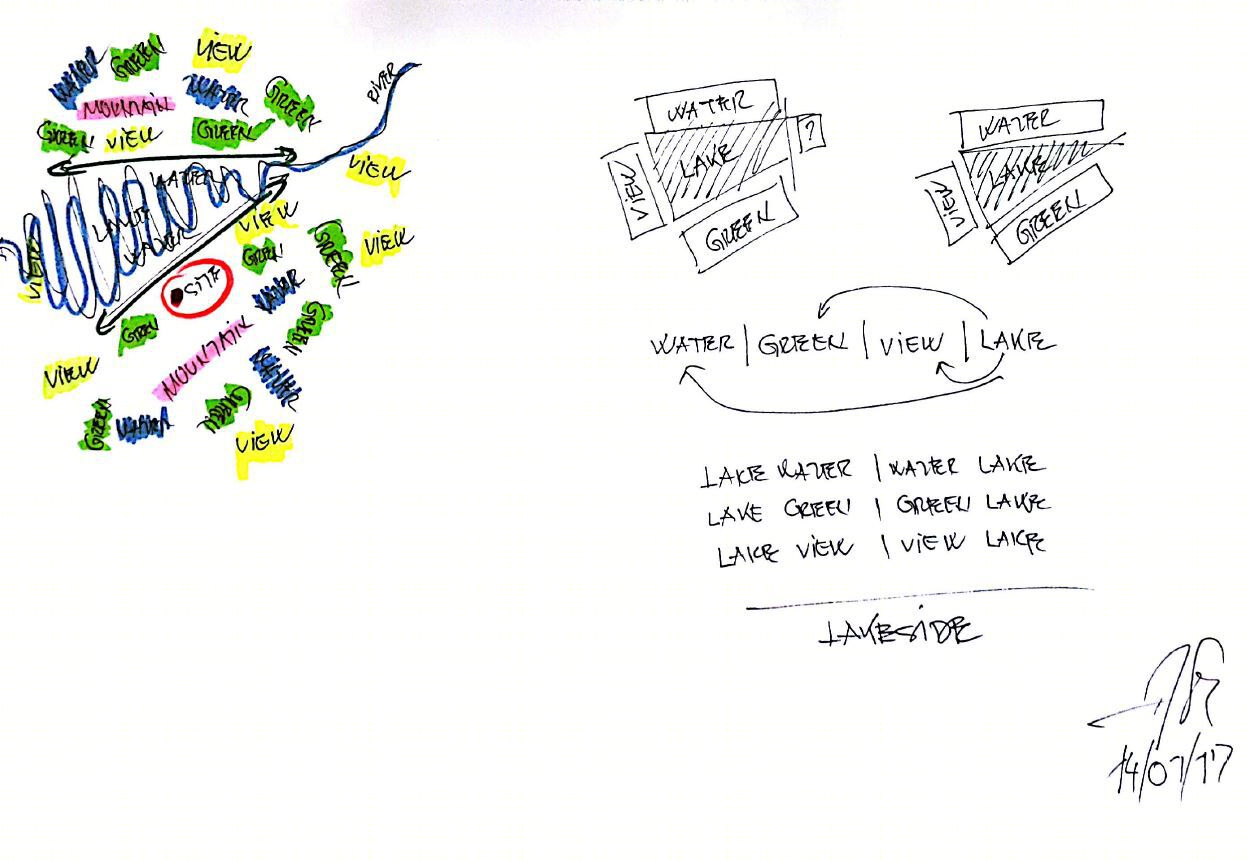 WATER
GREEN
VIEW
MOUNTAIN
WATER
GREEN
GREEN
VIEW
GREEN
RIVER
VIEW
WATER
LAKE
WATER
VIEW
VIEW
GREEN
GREEN
VIEW
SITE
WATER
GREEN
GREEN
MOUNTAIN
VIEW
WATER
GREEN
WATER
GREEN
VIEW
WATER
LAKE
?
VIEW
GREEN
WATER
LAKE
VIEW
GREEN
WATER | GREEN | VIEW | LAKE
LAKE WATER | WATER LAKE
LAKE GREEN | GREEN LAKE
LAKE VIEW | VIEW LAKE
LAKESIDE
14/07/17